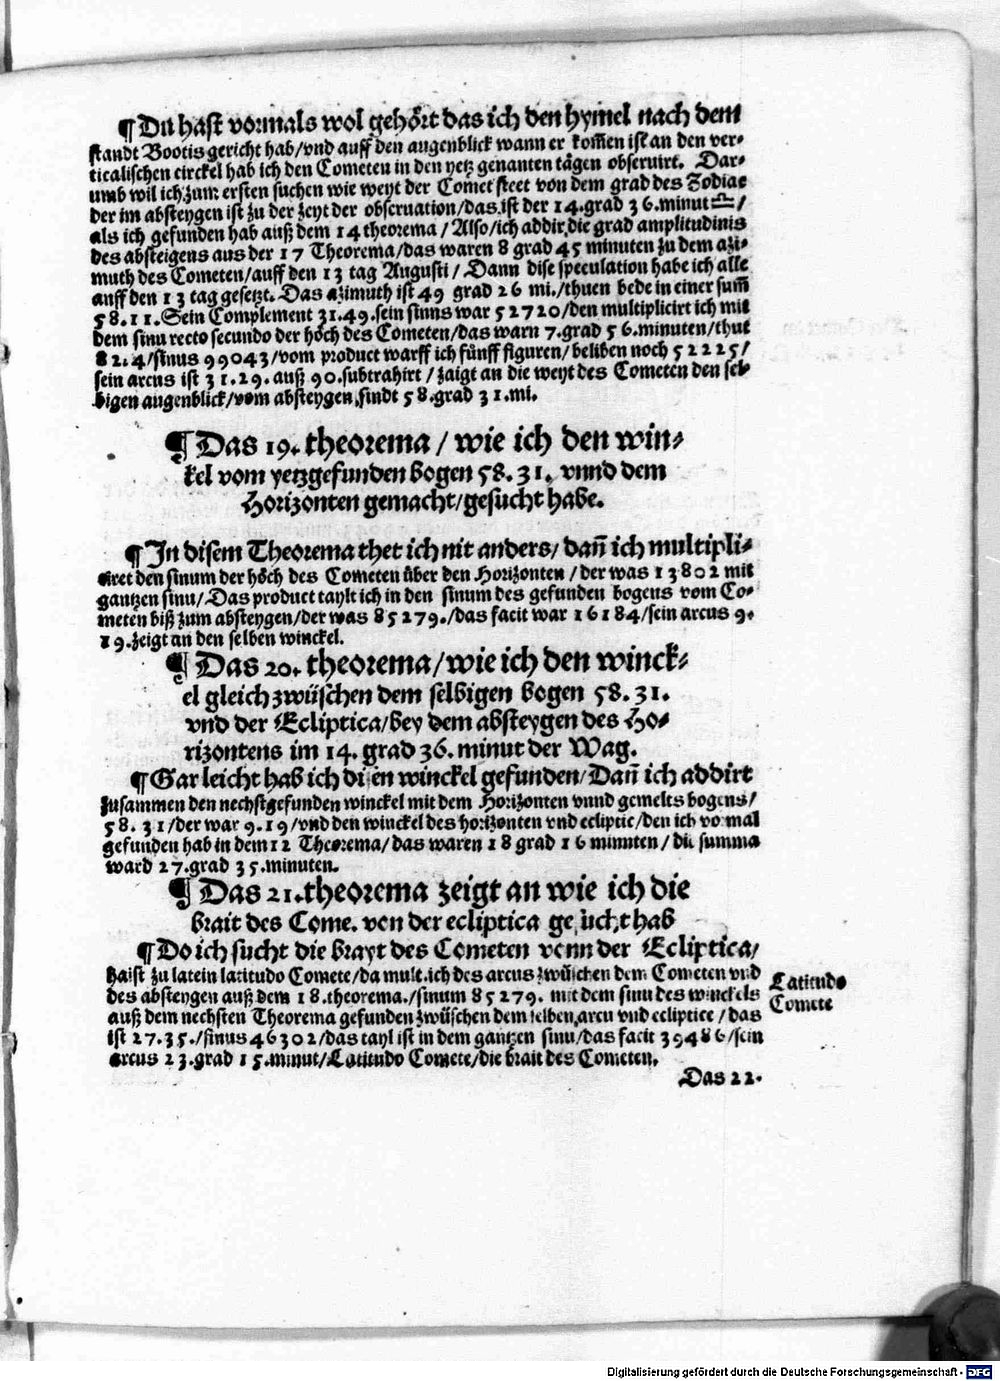 ¶Du hast vormals wol gehört das ich den hymel nach dem
standt Bootis gericht hab/vnd auff den augenblick wann er kom̃en ist an den ver⸗
ticalischen circkel hab ich den Cometen in den yetz genanten tägen obseruirt. Dar⸗
umb wil ich zum ersten suchen wie weyt der Comet steet von dem grad des Zodiac
der im absteygen ist zu der zeyt der obseruation/das ist der 14.grad 36.minut ♎/
als ich gefunden hab auß dem 14 theorema/Also/ich addir die grad amplitudinis
des absteigens aus der 17 Theorema/das waren 8 grad 45 minuten zu dem azi⸗
muth des Cometen/auff den 13 tag Augusti/Dann dise speculation habe ich alle
auff den 13 tag gesetzt. Das azimuth ist 49 grad 26 mi./thuen bede in einer sum̃
58.11. Sein Complement 31.49.sein sinns war 52720/den multiplicirt ich mit
dem sinu recto secundo der höch des Cometen/das warn 7.grad 56.minuten/thut
82.4/sinus 99043/vom product warff ich fünff figuren/beliben noch 52225/
sein arcus ist 31.29. auß 90.subtrahirt/zaigt an die weyt des Cometen den sel⸗
bigen augenblick/vom absteygen,findt 58.grad 31.mi.
¶Das 19. theorema/wie ich den win⸗
kel vom yetzgefunden bogen 58.31. vnnd dem
Horizonten gemacht/gesucht habe.
¶In disem Theorema thet ich nit anders/dañ ich multipli⸗
ciret den sinum der höch des Cometen über den Horizonten/der was 13802 mit
gantzen sinu/Das product taylt ich in den sinum des gefunden bogens vom Co⸗
meten biß zum absteygen/der was 85279./das facit war 16184/sein arcus 9.
19.zeigt an den selben winckel.
¶Das 20. theorema/wie ich den winck⸗
el gleich zwüschen dem selbigen bogen 58.31.
vnd der Ecliptica/bey dem absteygen des Ho⸗
rizontens im 14. grad 36. minut der Wag.
¶Gar leicht hab ich disen winckel gefunden/Dañ ich addirt
zusammen den nechstgefunden winckel mit dem Horizonten vnnd gemelts bogens/
58.31/der war 9.19/vnd den winckel des horizonten vnd ecliptic/den ich vormal
gefunden hab in dem 12 Theorema/das waren 18 grad 16 minnten/die summa
ward 27.grad 35.minuten.
¶Das 21.theorema zeigt an wie ich die
brait des Come. von der ecliptica gesücht hab
¶Do ich sucht die brayt des Cometen vonn der Ecliptica/
haist zu latein latitudo Comete/da mult.ich des arcus zwüschen dem Cometen vnd
des absteygen auß dem 18.theorema./sinum 85279. mit dem sinu des winckels
auß dem nechsten Theorema gefunden zwüschen dem selben arcu vnd ecliptice/das
ist 27.35./sinus 46302/das taylt ist in dem gantzen sinu/das facit 39486/sein
arcus 23.grad 15.minut/Latitudo Comete/die brait des Cometen.
Latitudo
Comete
Das 22.
Digitalisierung gefördert durch die Deutsche Forschungsgemeinschaft - DFG